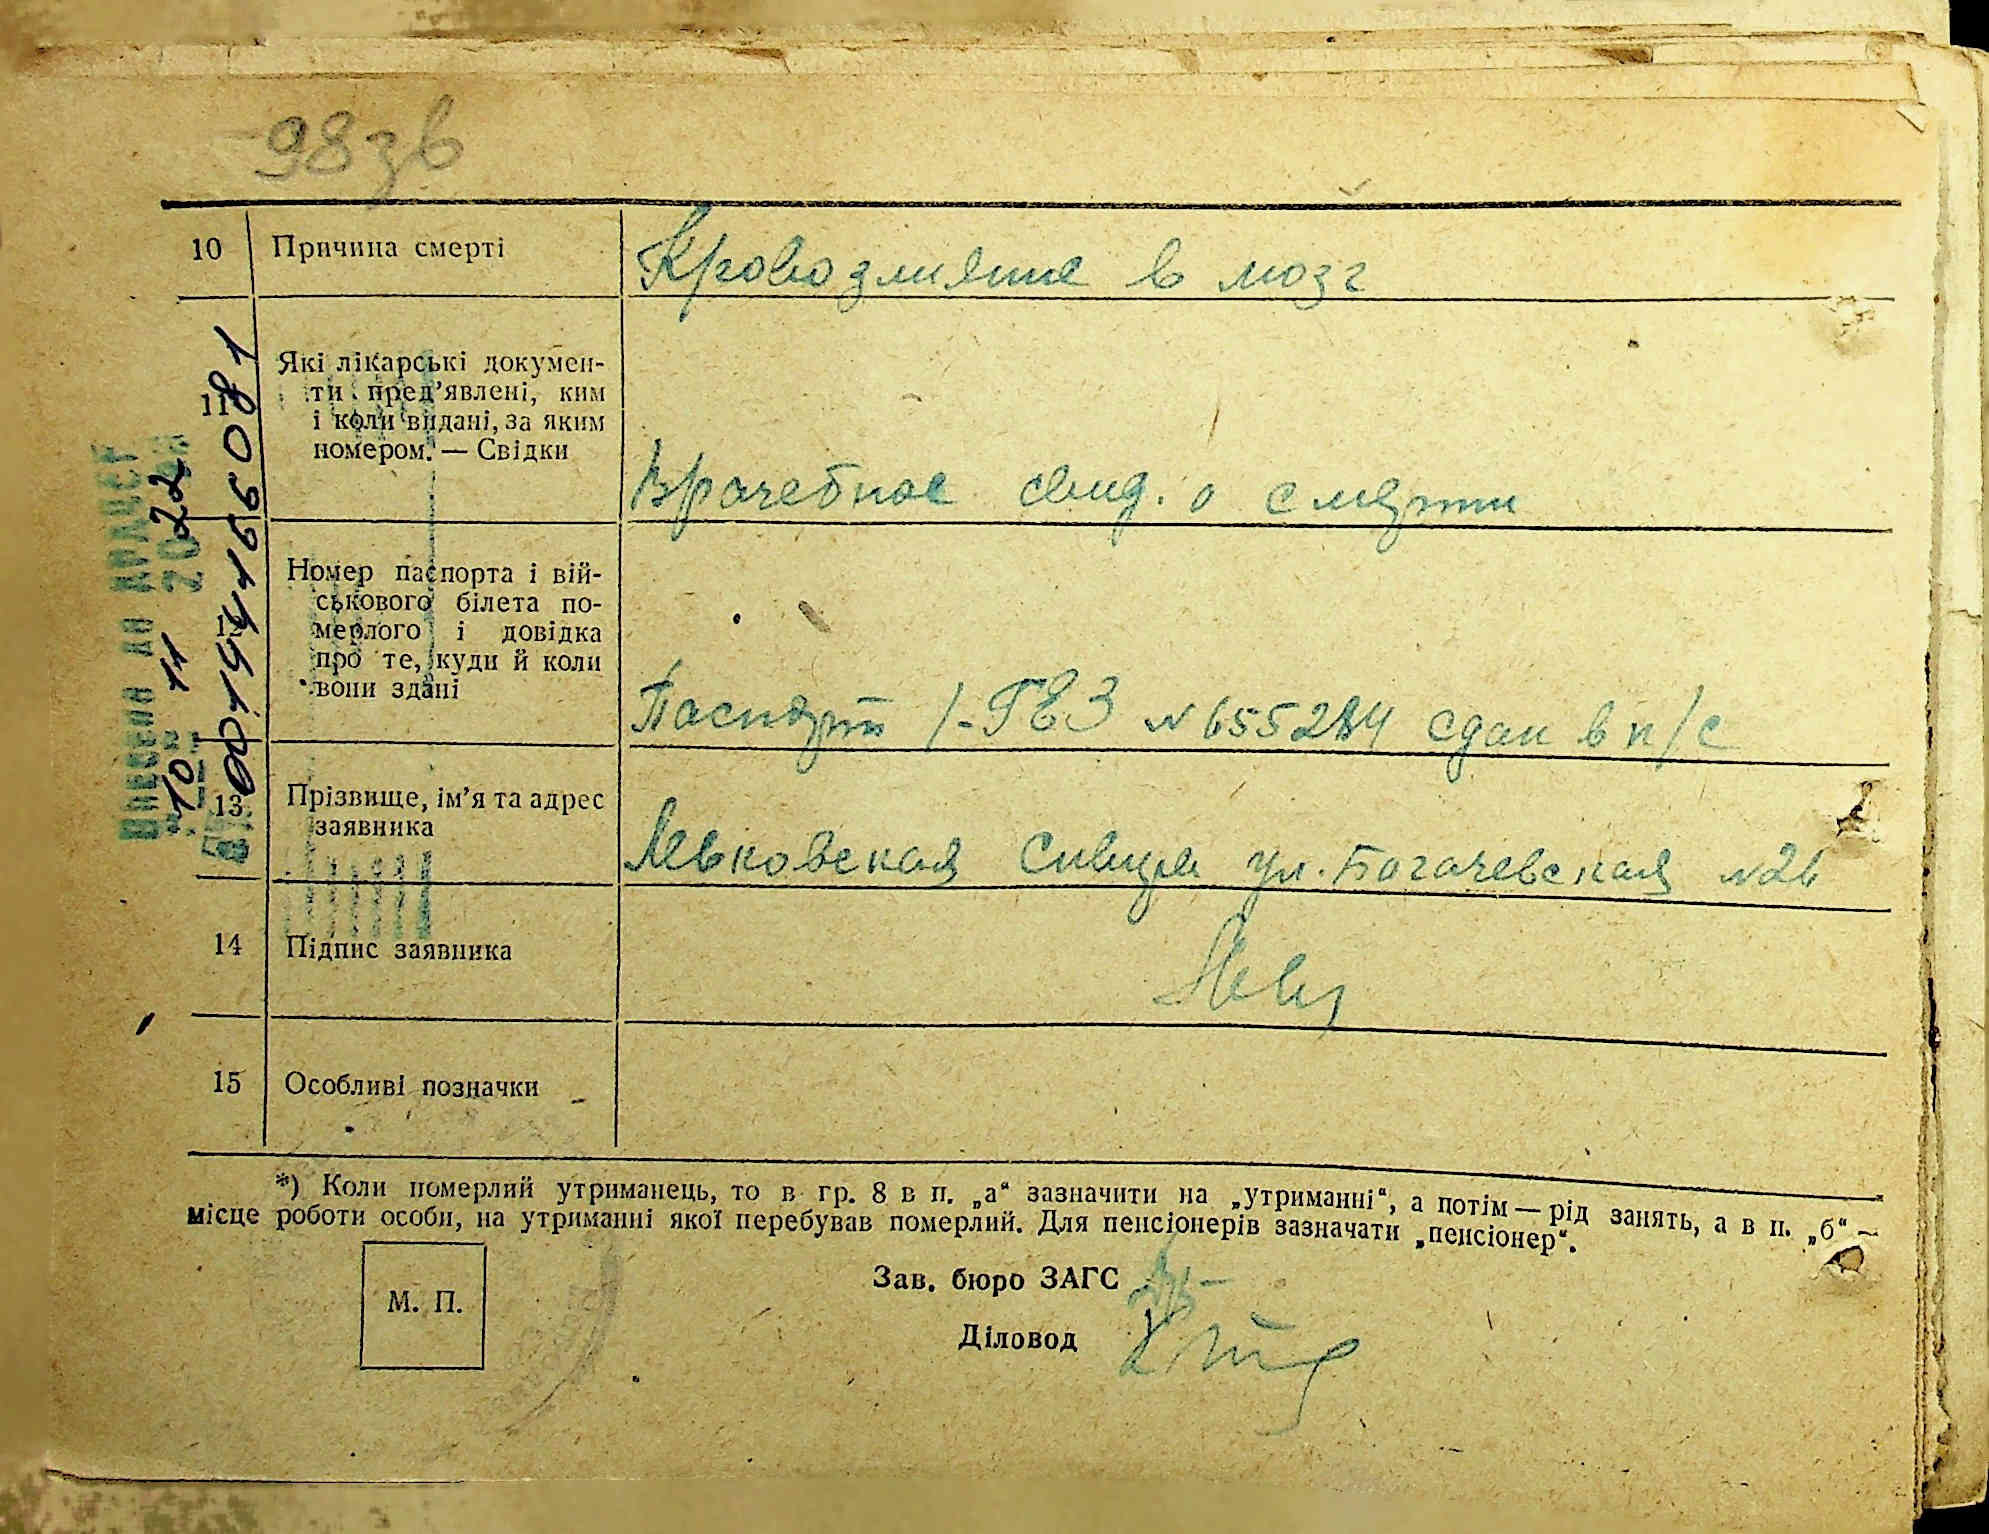 98зв
10 Причина смерті Кровоизлияние в мозг
11 Які лікарські докумен-
ти пред’явлені, ким
і коли видані, за яким
номером. — Свідки
Врачебное свид. о смерти
Номер паспорта і вій-
ськового білета по-
мерлого і довідка
про те, куди й коли
вони здані
Паспорт 1-ГЕЗ №655284 сдан в п/с
13 Прізвище, ім’я та адрес
заявника
Левковская ул. Богачевская №26
14 Підпис заявника
15 Особливі позначки
*) Коли померлий утриманець, то в гр. 8 в п. „а“ зазначити на „утриманні“, а потім — рід занять, а в п. „б“ —
місце роботи особи, на утриманні якої перебував померлий. Для пенсіонерів зазначати „пенсіонер“.
М. П.
Зав. бюро ЗАГС
Діловод
Внесено до
10 11 2022
00194166081